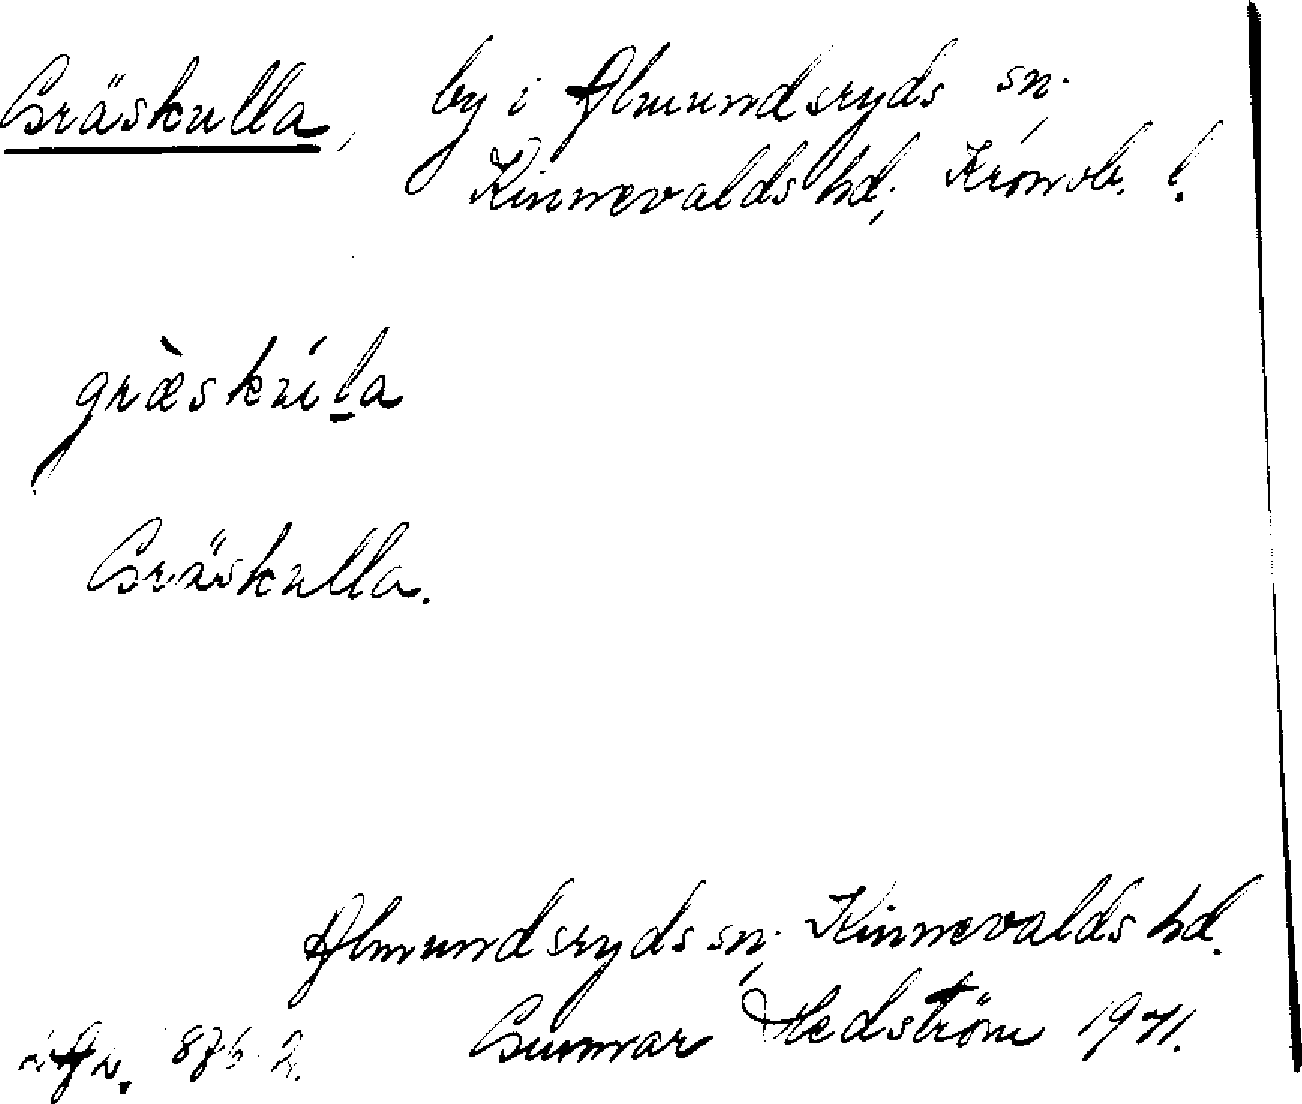 Gräskulla, by i Almundsryds sn.,
Kinnevalds hd., Kronob. l.
græ̀skúl̠a
Gräskulla.
Almundsryds sn., Kinnevalds hd.
Gunnar Hedström 1971.
876 2.